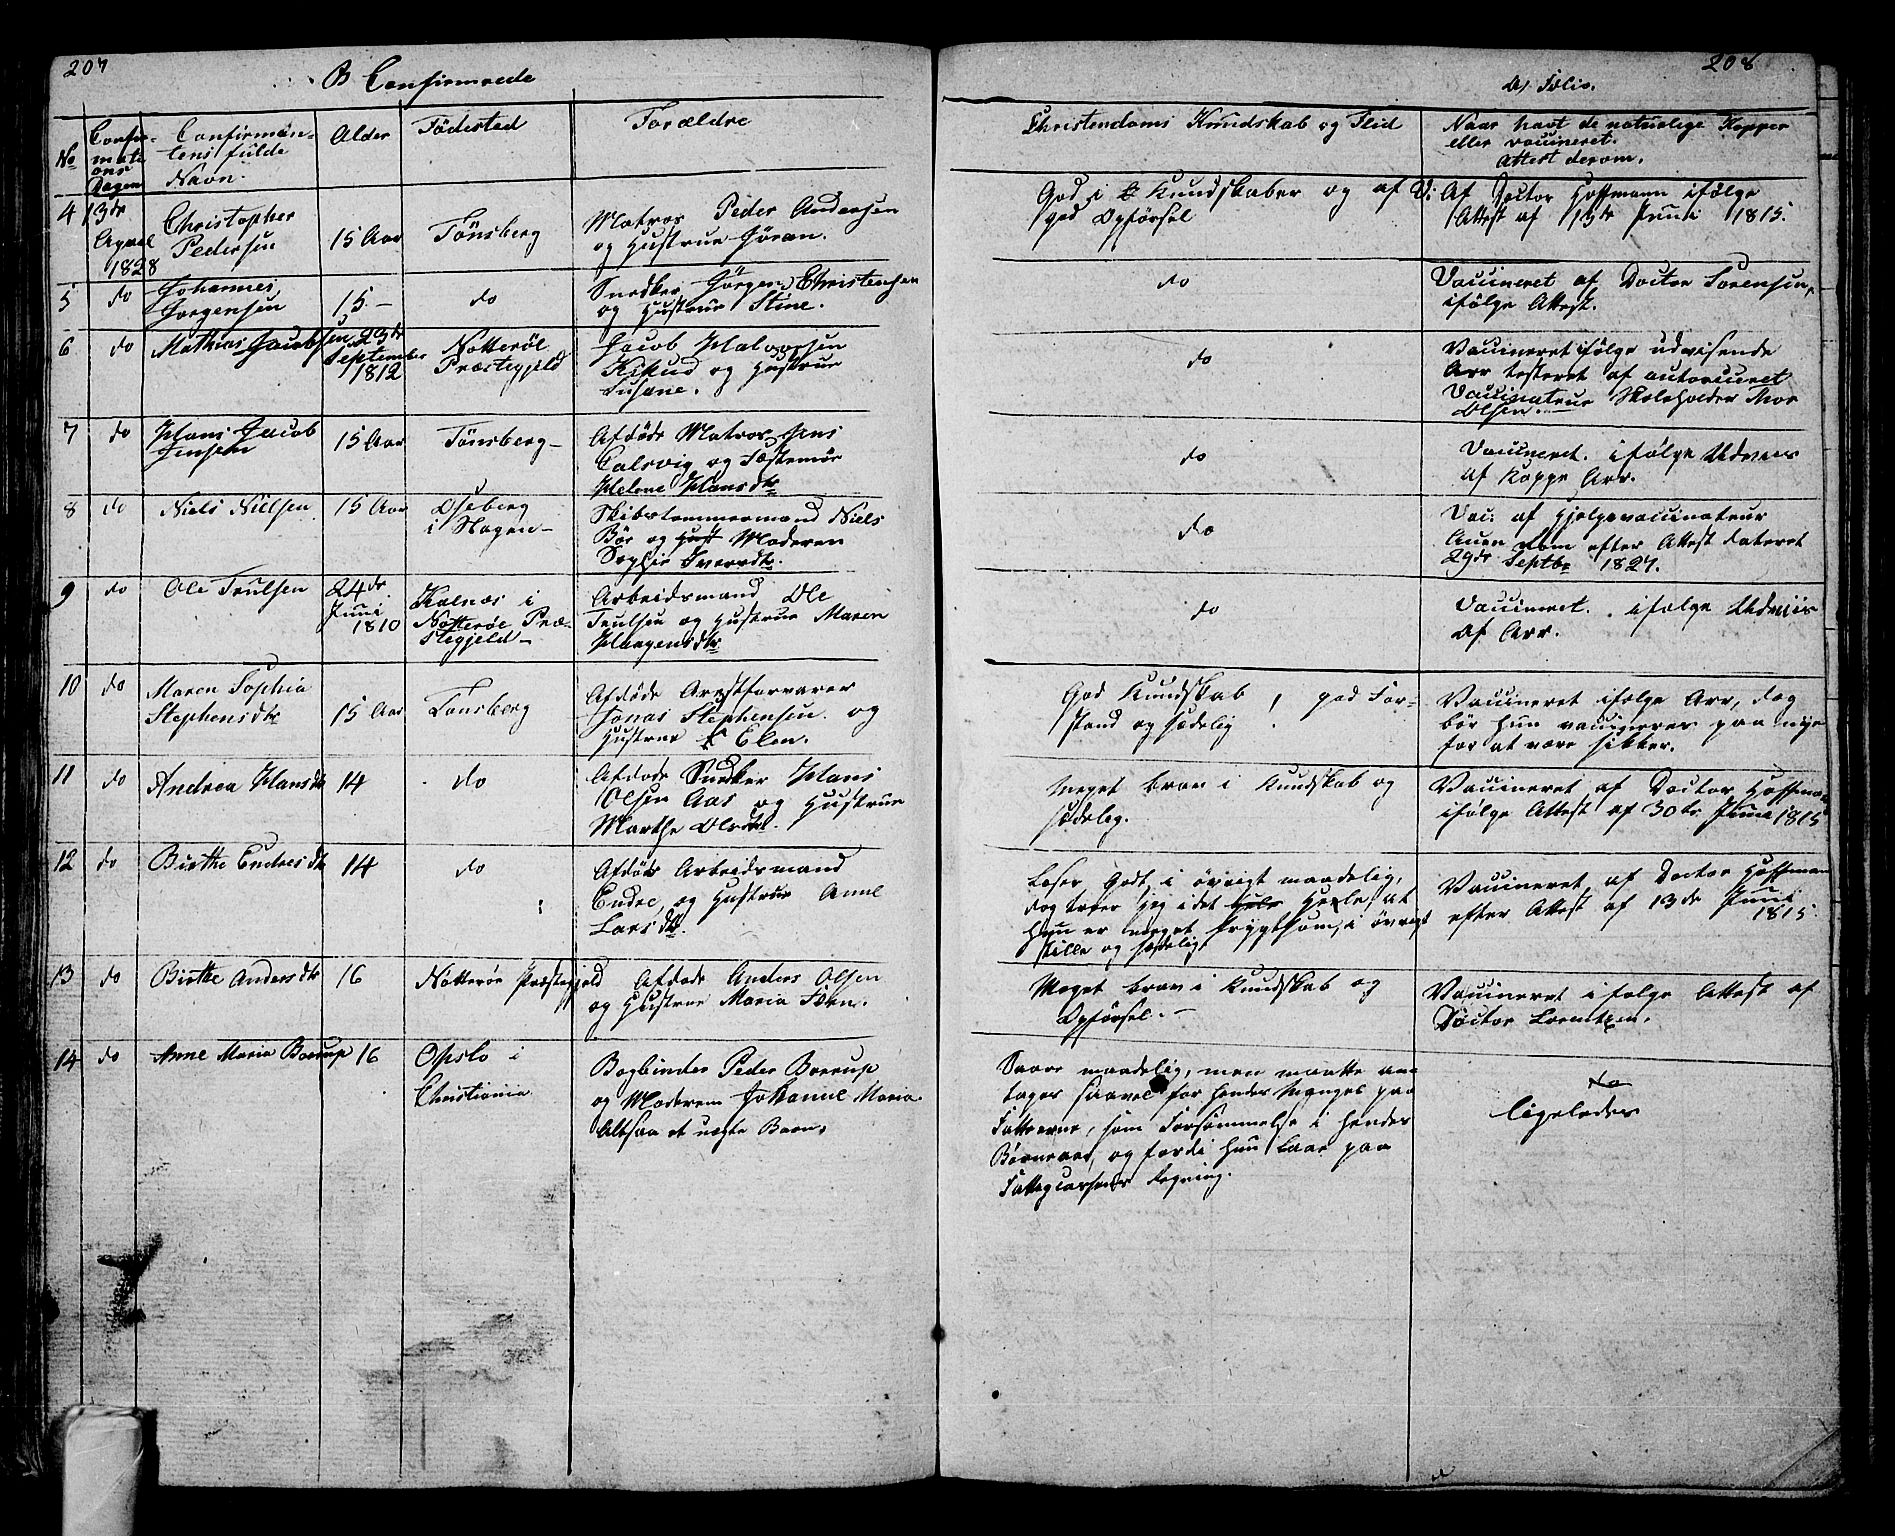 207
B Confirmerede
No
Confir-
mati
ons
Dagen
Confirman-
tens fulde
Navn.
Alder
Födested
Forældre
4
13de
April
1828
Christopher
Pedersen
15 Aar
Tönsberg
Matros Peder Andersen
og Hustrue Göran.
5
do
Johannes
Jörgensen
15 –
do
Snedker Jörgen Christensen
og Hustrue Stine.
6
do
Mathias Jacobsen
23de
September
1812
Nötteröe
Præstegjeld
Jacob Halvorsen
og Hustrue
Susane.
7
do
Hans Jacob
Jensen
15 Aar
Tönsberg –
Afdöde Matros Jens
og Fæstemöe
Helene Hansdtr
8
do
Niels Nielsen
15 Aar
Oseberg
i Slagen –
Skibstömmermand Niels
Böe og Hust Moderen
Sophie Iversdtr.
9
do
Ole Trulsen
24de
Juni
1810
Kalnæs i
Nötteröe Præ-
stegjeld –
Arbeidsmand Ole
Trulsen og Hustrue Maren
Haagensdtr
10
do
Maren Sophia
Stephensdtr
15 Aar
Tönsberg
Afdöde Arestforvarer
Jonas Stephensen og
Hustrue Elen.
11
do
Andrea Hansdtr
14
do
Afdöde Snedker Hans
Olsen Aas og Hustrue
Marthe Olsdtr.
12
do
Birthe Endresdtr
14
do
Afdöde Arbeidsmand
Endre og Hustrue Anne
Larsdtr.
13
do
Birthe Andersdtr
16
Nötteröe Præstegjeld
Afdöde Anders Olsen
og Hustrue Maria
14
do
Anne Maria Borrup
16
Opslo i
Christiania
Bogbinder Peder Borrup
og Moderen Johanne Maria
Altsaa et uægte Barn.
208
Folio.
Christendoms Kundskab og Flid
Naar havt de naturlige Kopper
eller vaccineret.
Attest derom.
God i Kundskaber og af
god Opförsel
V: Af Doctor Hoffmann ifölge
Attest af 19de Juni 1815.
do
Vaccineret af Doctor Sörensen,
ifölge Attest.
do
Vaccineret ifölge udvisende
Arr testeret af autoriseret
Vaccinateur Skoleholder Mor
Olsen.
do
Vaccineret. ifölge Udviis
af Koppe Arr.
do
Vac: af Hjelpevaccinateur
Auen som efter Attest dateret
29de Septbr 1827.
do
Vaccineret. ifölge Udviis
af Arr.
God Kundskab ; god For-
stand og sædelig
Vaccineret ifölge Arr, dog
bör hun vaccineres paa nye
for at være sikker.
Meget brav i Kundskab og
sædelig.
Vaccineret af Doctor Hoffman
ifölge Attest af 30te Juni 1815
Læser Godt, i övrigt maadelig,
dog troer jeg i det Hele Hele, at
Hun er meget frygtsom, i övrigt
stille og sædelig
Vaccineret af Doctor Hoffman
efter Attest af 13de Juni
1815.
Meget brav i Kundskab og
Opförsel. –
Vaccineret ifölge Attest af
Doctor Lorentzen.
Saare maadelig, men maatte an-
tages saavel for hendes Mangel paa
Fatteevne, som Forsömmelse i hendes
Barneaar, og fordi hun laae paa
Fattigcassens Regning.
do
ligeledes